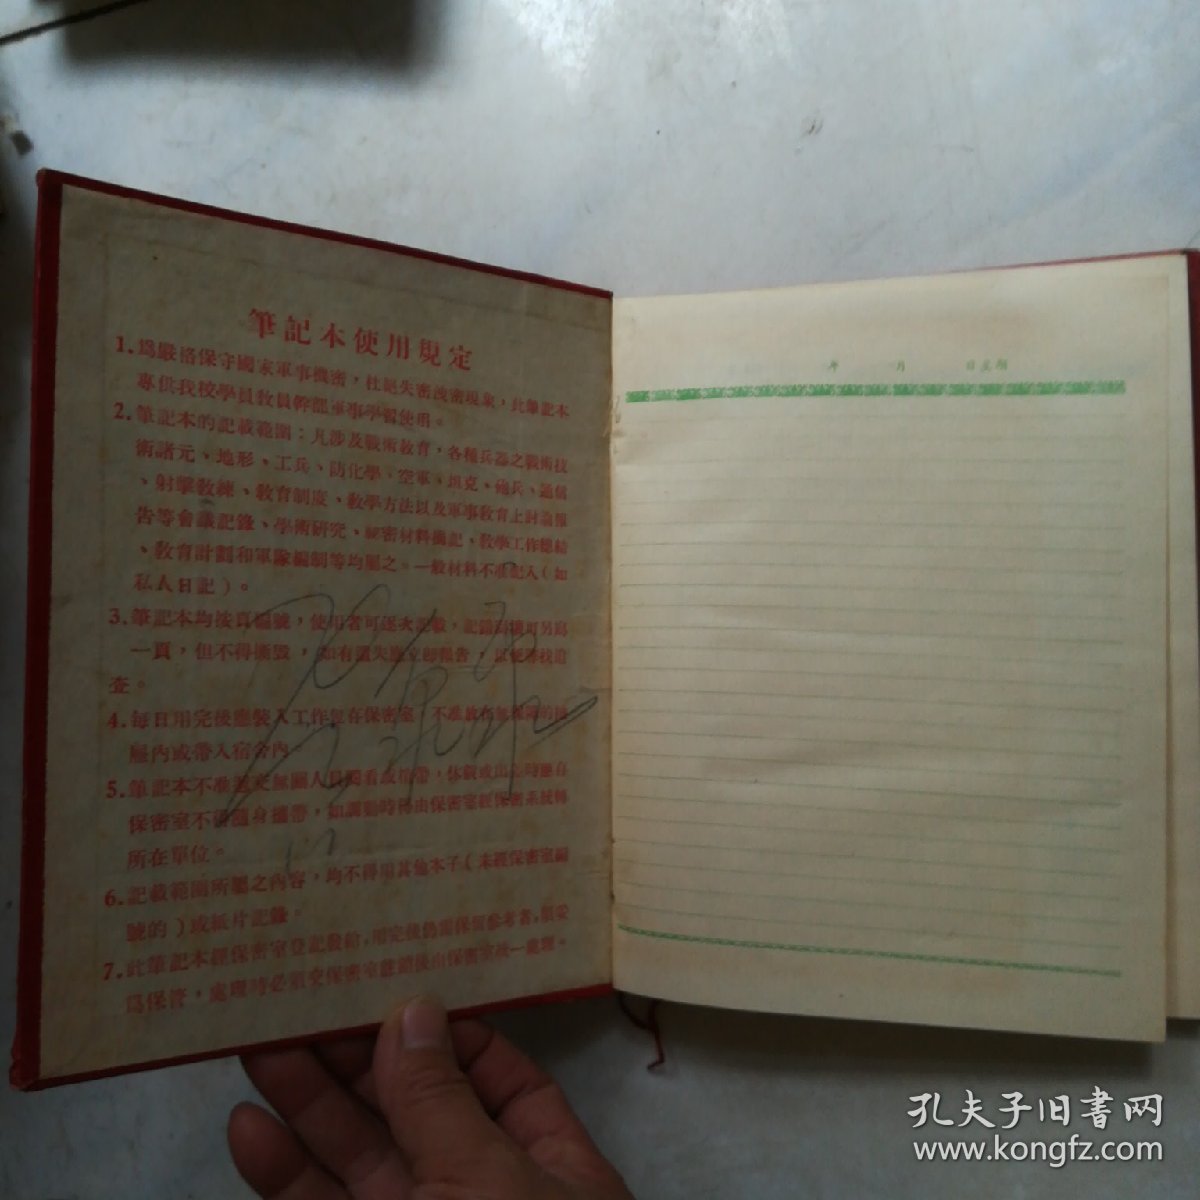 筆記本使用規定
1.爲嚴格保守國家軍事機密，杜絕失密洩密現象，此筆記本
專供我校學員教員幹部軍事學習使用。
2.筆記本的記載範圍：凡涉及戰術教育，各種兵器之戰術技
術諸元、地形、工兵、防化學、空軍、坦克、砲兵、通信
、射擊教練、教育制度、教學方法以及軍事教育上討論報
告等會議記錄、學術研究、秘密材料摘記、教學工作總結
、教育計劃和軍隊編制等均屬之。一般材料不准記入（如
私人日記）。
3.筆記本均按頁編號，使用者可逐次記載，記錯
一頁，但不得撕毀，如有遺失應立即報告，以便尋找追
查。
4.每日用完後應裝入工作包存保密室，不准放在無保障的
屜內或帶入宿舍內
5.筆記本不准 無關人員閱看或攜帶，休假或出差時應存
保密室不得隨身攜帶，如調動時得由保密室經保密系統轉
所在單位。
6.記載範圍所屬之內容，均不得用其他本子（未經保密室編
號的）或紙片記錄。
7.此筆記本經保密室登記發給，用完後仍需保留參考者，須妥
爲保管，處理時必須交保密室 後由保密室統一處理。
年 月 日星期
孔夫子旧書网
www.kongfz.com